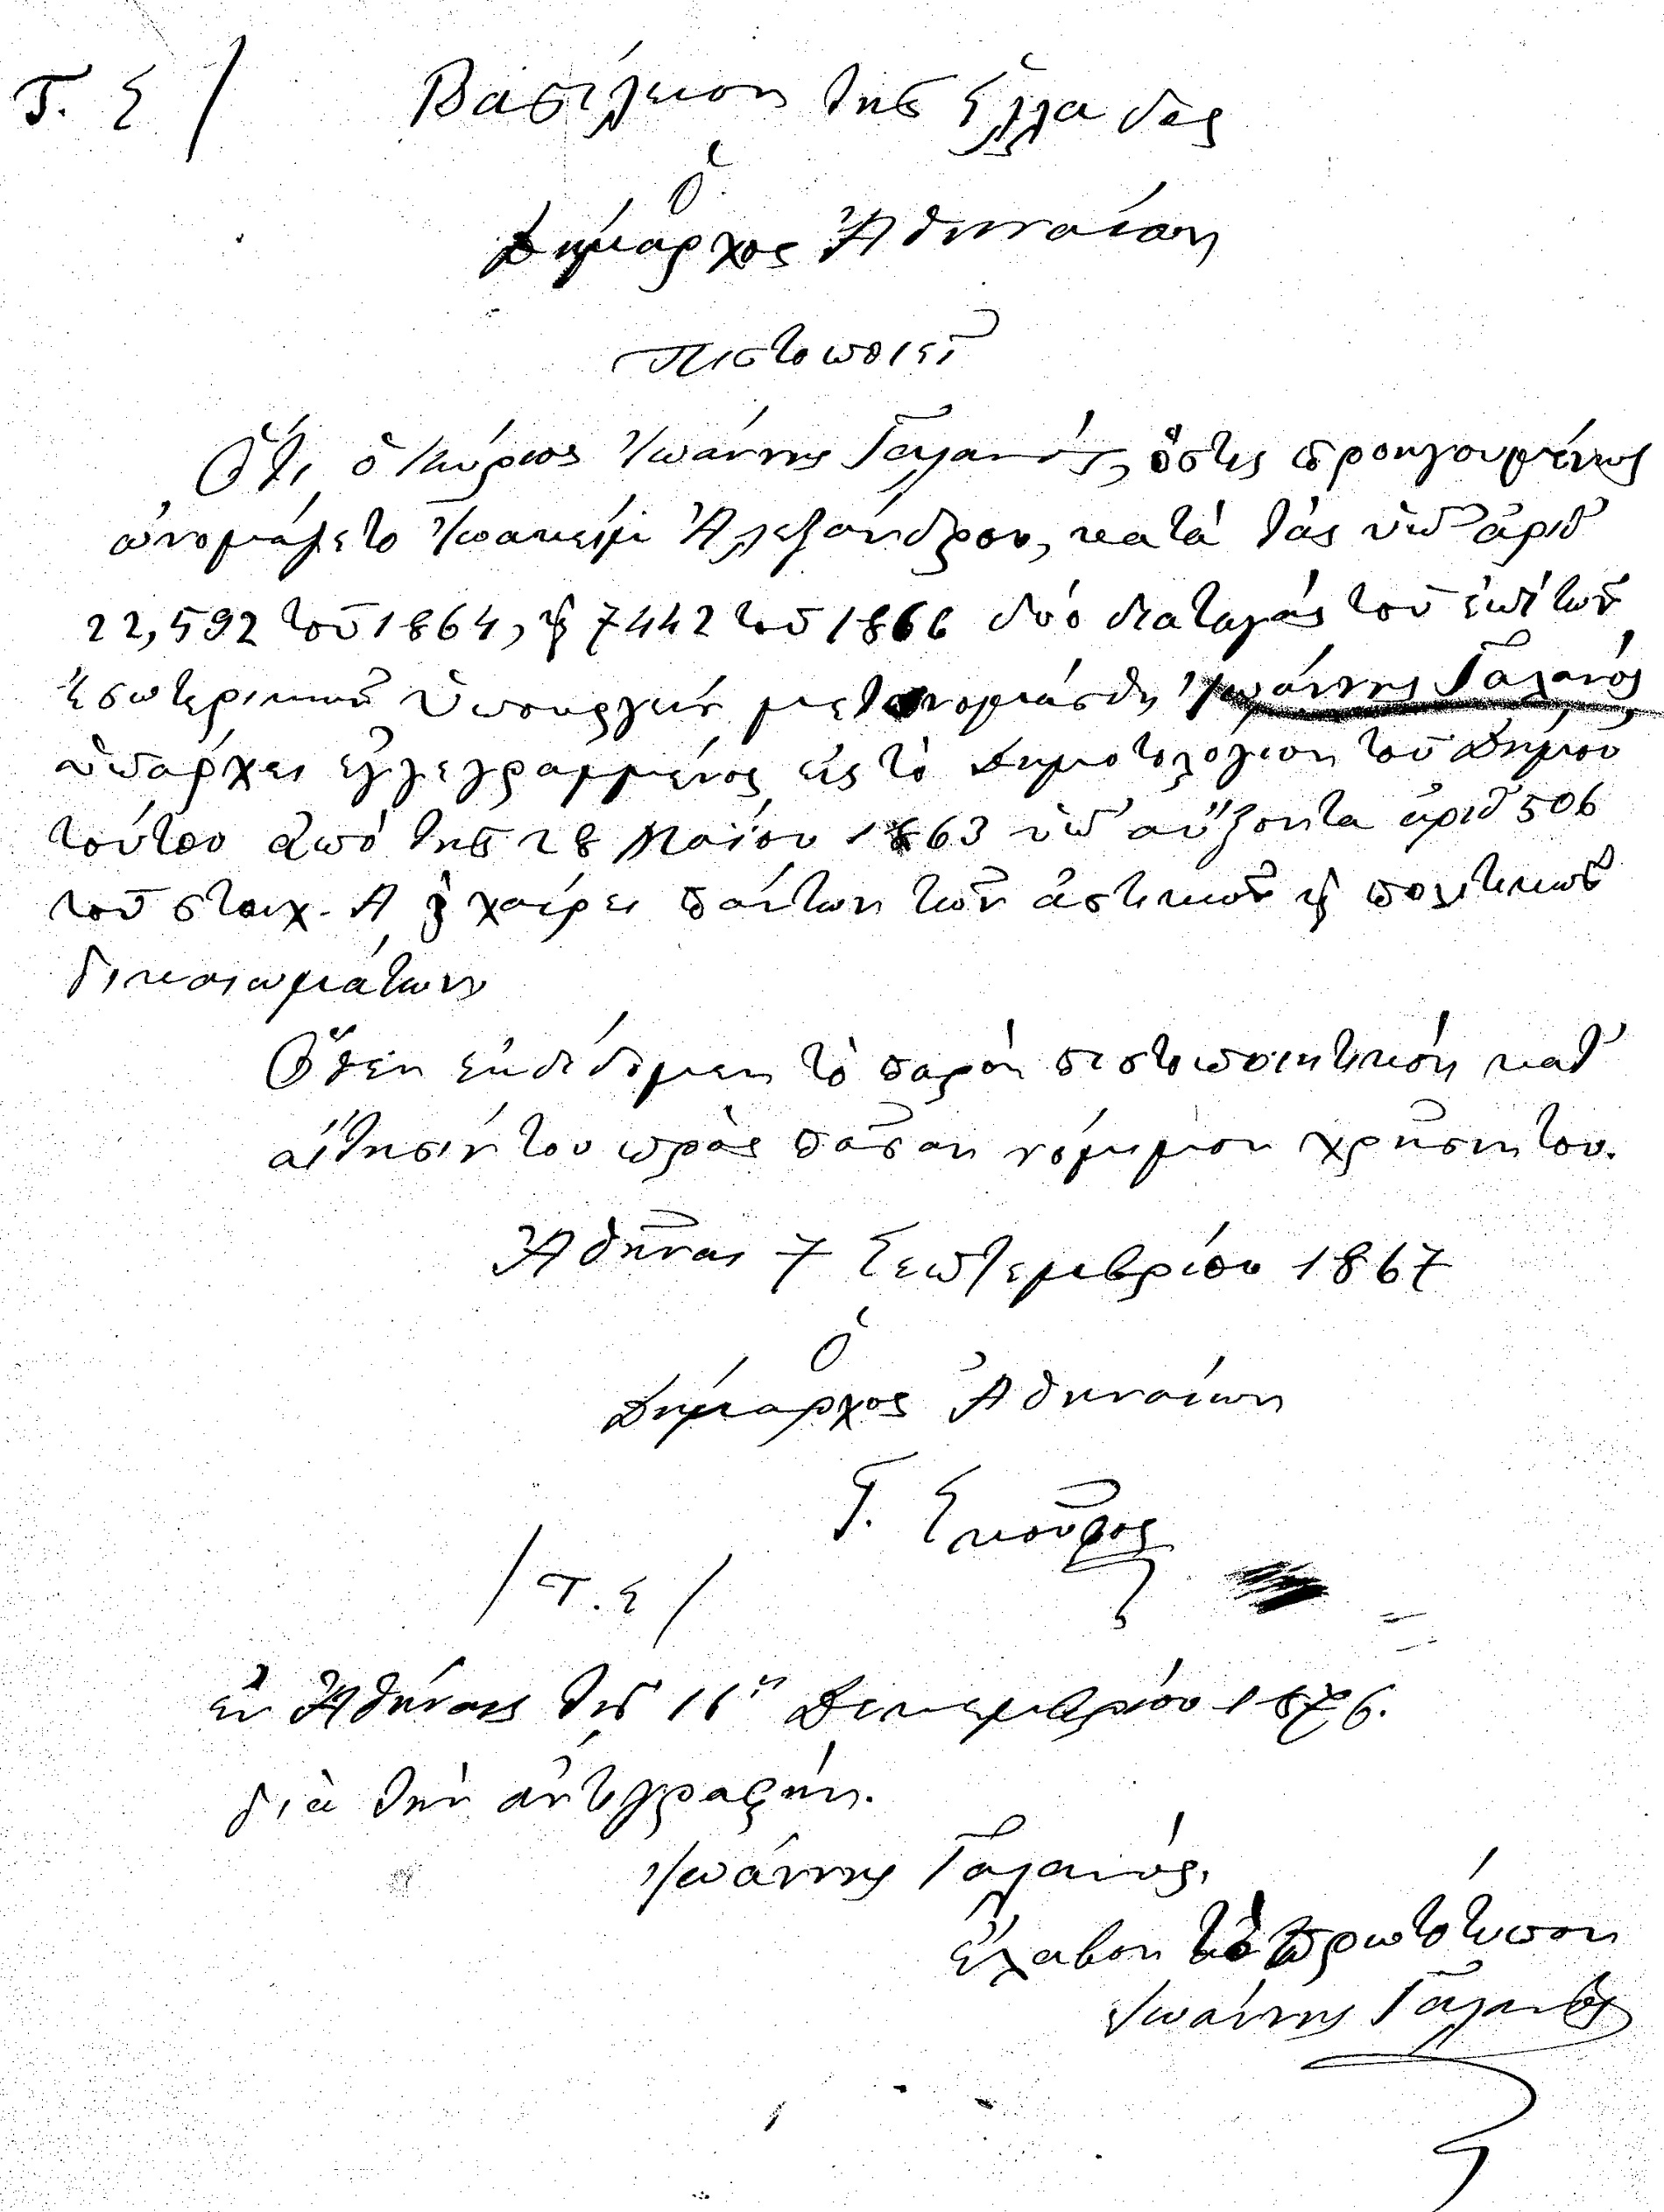 Τ. Σ /
Βασίλειον της Ελλάδος
Ὁ
Δήμαρχος Ἀθηναίων
Πιστοποιεῖ
Ὅτι ὁ Κύριος Ἰωάννης Γαλανός, ὅστις προηγουμένως
ὠνομάζετο Ἰωακείμ Ἀλεξάνδρου, κατά τάς ὑπ' ἀριθ
22,592 τοῦ 1864, ϗ 7442 τοῦ 1866 δύο διαταγάς τοῦ ἐπί τῶν
Ἐσωτερικῶν Ὑπουργείου μετονομάσθη Ἰωάννης Γαλανός
ὑπάρχει ἐγγεγραμμένος εἰς τὸ Δημοτολόγιον τοῦ Δήμου
τούτου ἀπό τῆς 28 Μαΐου 1863 ὑπ' αὔξοντα ἀριθ 506
τοῦ στοιχ. Α ϗ χαίρει πάντων τῶν ἀστικῶν ϗ πολιτικῶν
δικαιωμάτων
Ὅθεν ἐκδίδομεν τὸ παρόν πιστοποιητικόν καθ'
αἴτησίν του πρὸς πᾶσαν νόμιμον χρῆσιν του.
Ἀθῆναι 7 Σεπτεμβρίου 1867
Ὁ
Δήμαρχος Ἀθηναίων
Γ. Σκοῦζος
/ Τ. Σ /
ἐν Ἀθήναις τῇ 16ῃ Δεκεμβρίου 1876.
διὰ τὴν ἀντιγραφήν.
Ἰωάννης Γαλανός.
ἔλαβον τὸ πρωτότυπον
Ἰωάννης Γαλανός